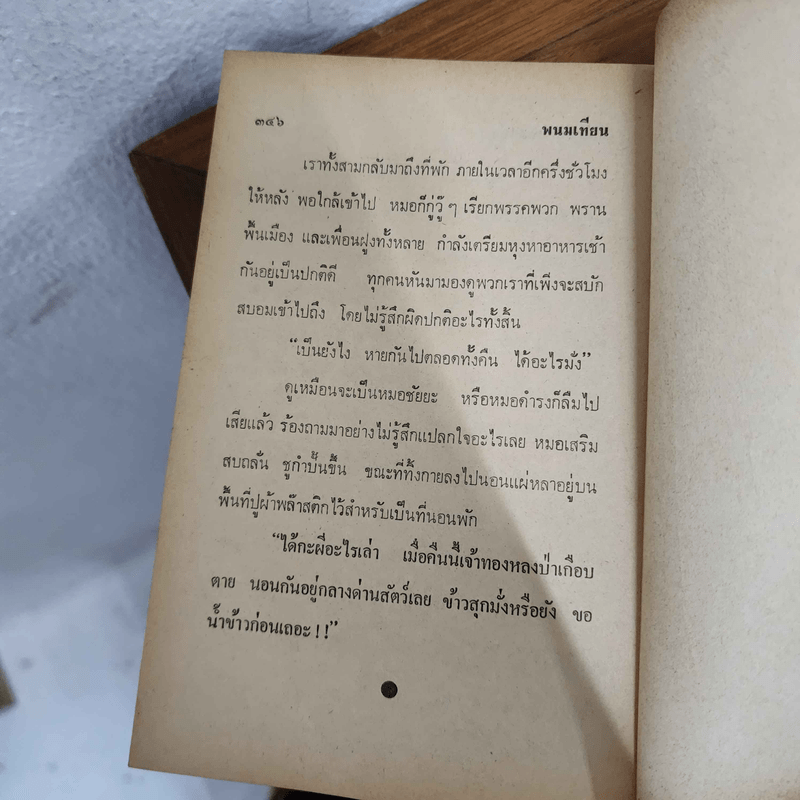 ๓๔๖
พนมเทียน
เราทั้งสามกลับมาถึงที่พัก ภายในเวลาอีกครึ่งชั่วโมง
ให้หลัง พอใกล้เข้าไป หมอก็กู่วู๊ ๆ เรียกพรรคพวก พราน
พื้นเมือง และเพื่อนฝูงทั้งหลาย กำลังเตรียมหุงหาอาหารเช้า
กันอยู่เป็นปกติดี ทุกคนหันมามองดูพวกเราที่เพิ่งจะสบัก
สบอมเข้าไปถึง โดยไม่รู้สึกผิดปกติอะไรทั้งสิ้น
“เป็นยังไง หายกันไปตลอดทั้งคืน ได้อะไรมั่ง”
ดูเหมือนจะเป็นหมอชัยยะ หรือหมอดำรงก็ลืมไป
เสียแล้ว ร้องถามมาอย่างไม่รู้สึกแปลกใจอะไรเลย หมอเสริม
สบถลั่น ชูกำปั้นขึ้น ขณะที่ทิ้งกายลงไปนอนแผ่หลาอยู่บน
พื้นที่ปูผ้าพล๊าสติกไว้สำหรับเป็นที่นอนพัก
“ได้กะผีอะไรเล่า เมื่อคืนนี้เจ้าทองหลงป่าเกือบ
ตาย นอนกันอยู่กลางด่านสัตว์เลย ข้าวสุกมั่งหรือยัง ขอ
น้ำข้าวก่อนเถอะ ! !”